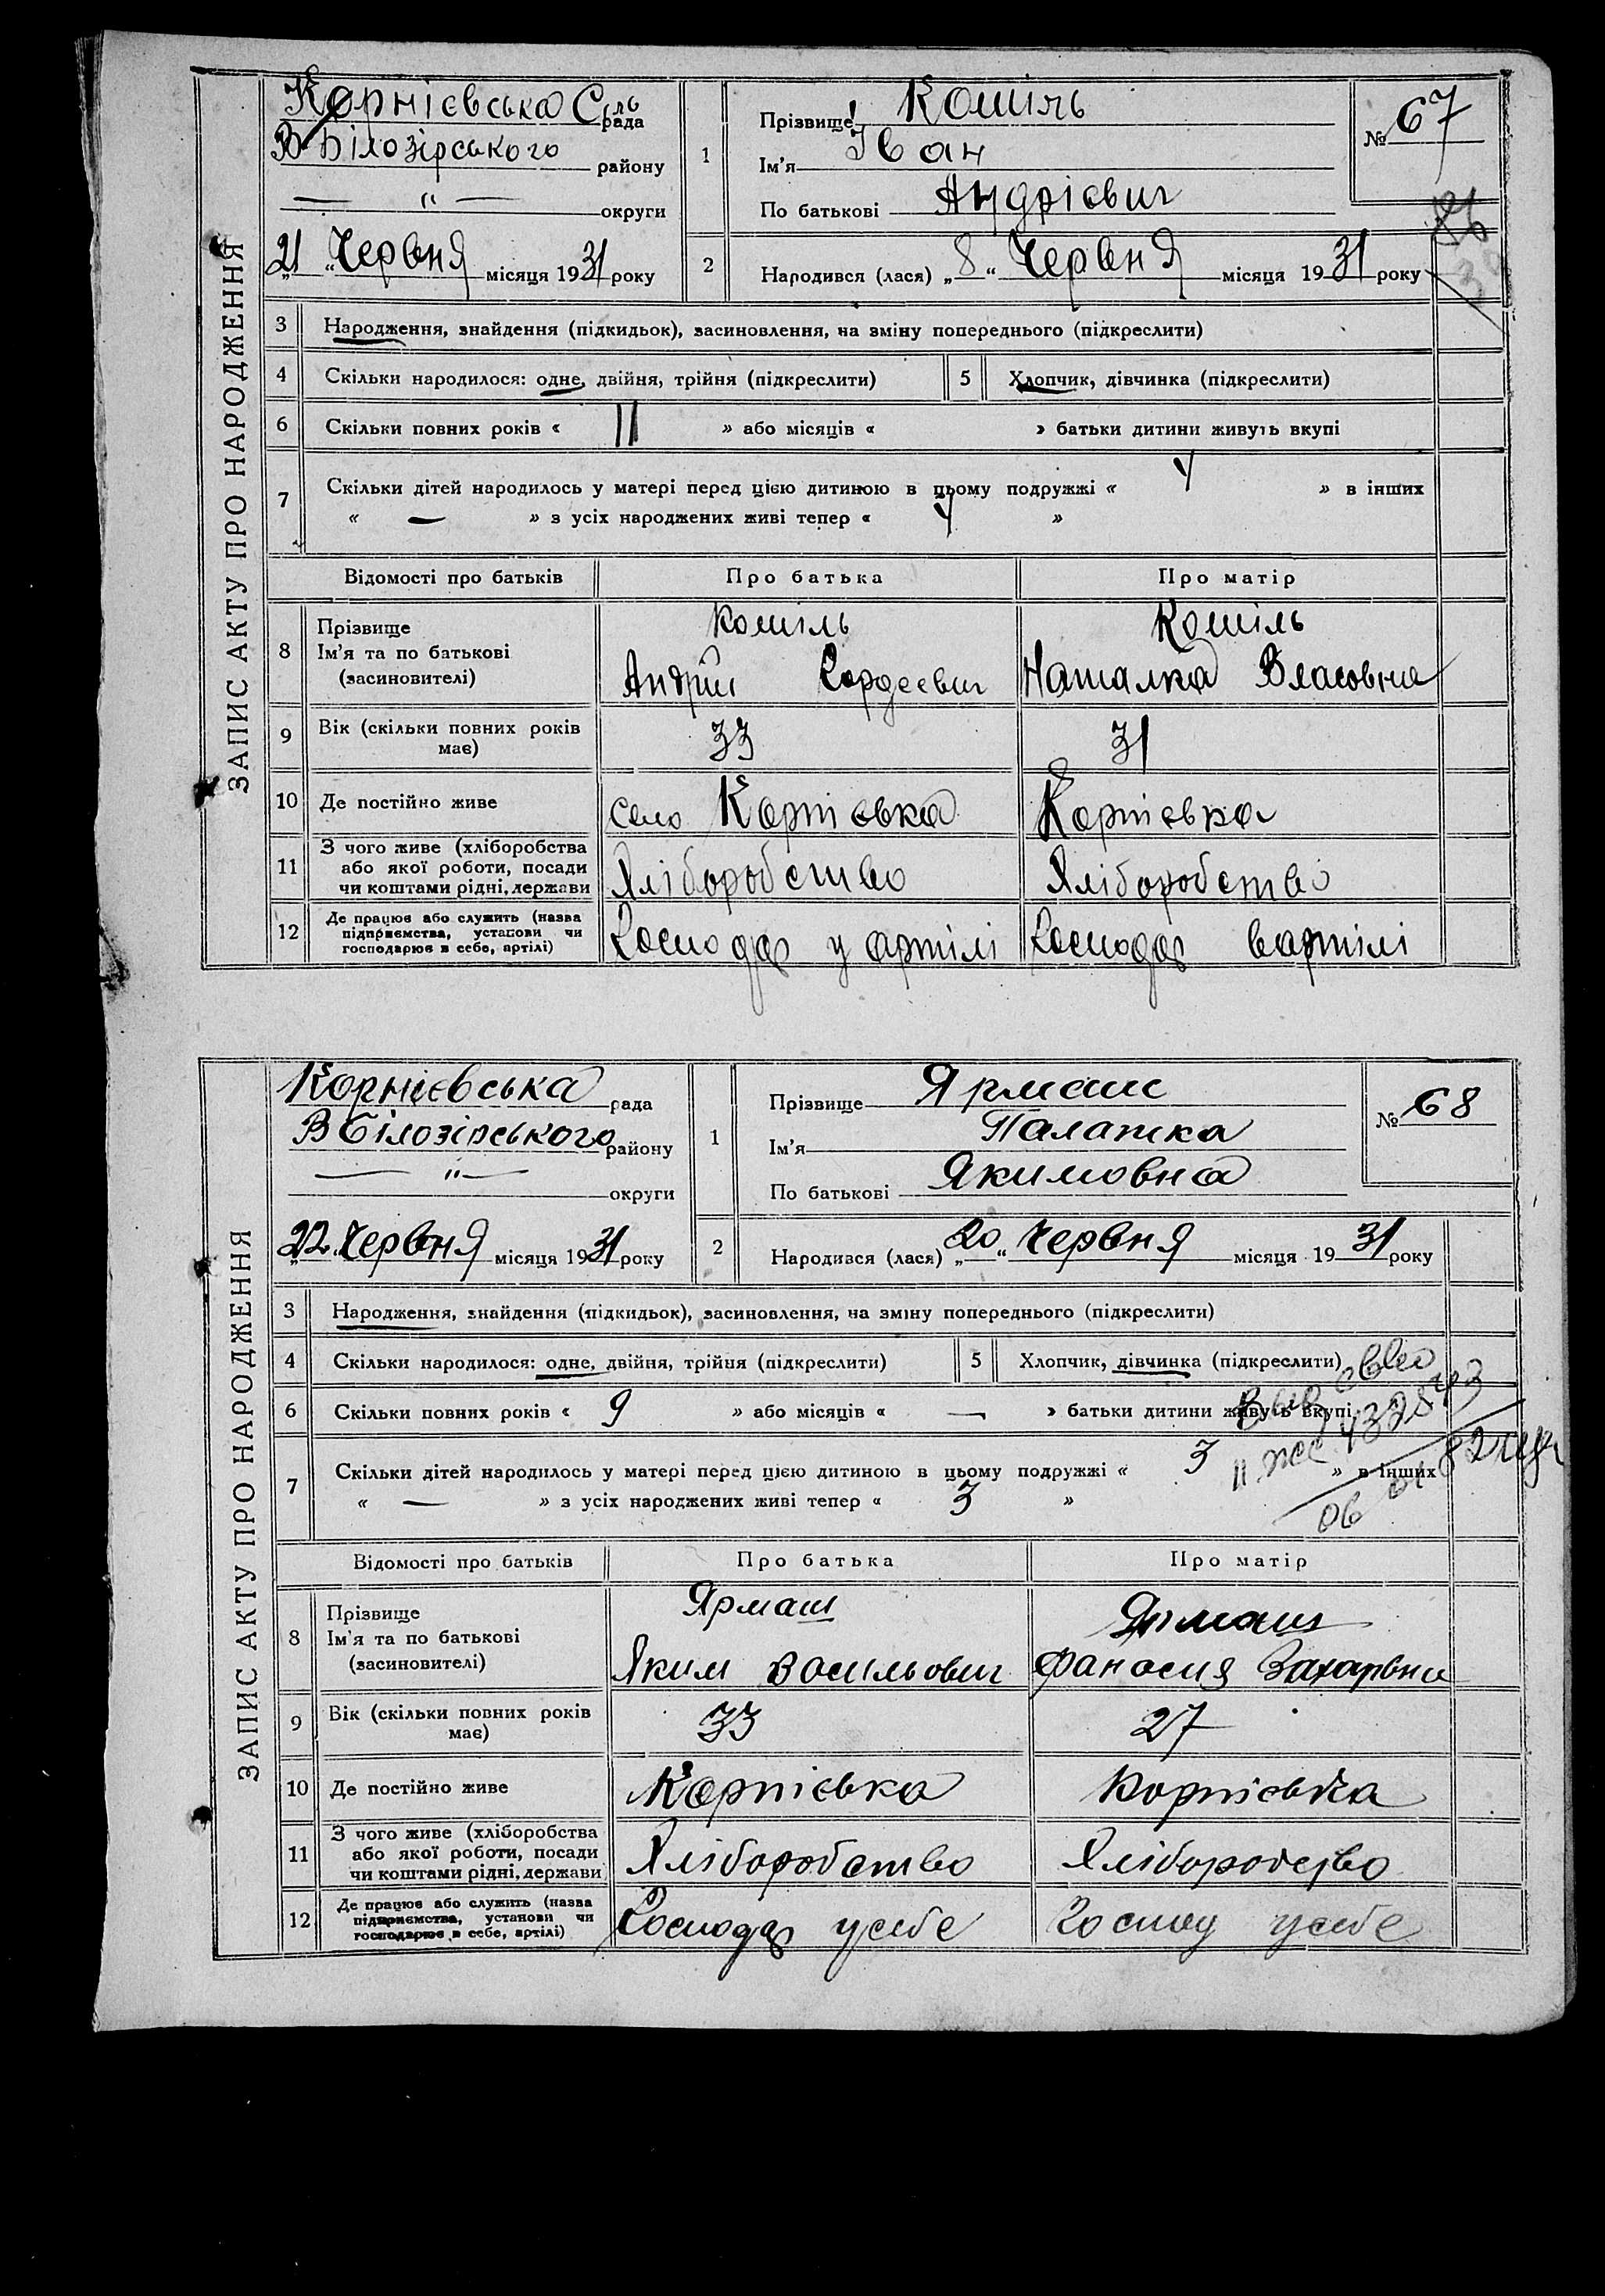 ЗАПИС АКТУ ПРО НАРОДЖЕННЯ
Корнієвська Сіль рада
В-Білозірського району
— " — округи
„21“ Червня місяця 1931 року
1 Прізвище Кошіль
Ім'я Іван
По батькові Андрієвич
№ 67
2 Народився (лася) „8“ Червня місяця 1931 року
3 Народження, знайдення (підкидьок), засиновлення, на зміну попереднього (підкреслити)
4 Скільки народилося: одне, двійня, трійня (підкреслити) 5 Хлопчик, дівчинка (підкреслити)
6 Скільки повних років « 11 » або місяців « » батьки дитини живуть вкупі
7 Скільки дітей народилось у матері перед цією дитиною в цьому подружжі « 4 » в інших
« — » з усіх народжених живі тепер « 4 »
Відомості про батьків Про батька Про матір
8 Прізвище
Ім'я та по батькові
(засиновителі)
Кошіль
Андрій Гордеєвич
Кошіль
Наталка Власовна
9 Вік (скільки повних років має) 33 31
10 Де постійно живе село Корнієвка Корнієвка
11 З чого живе (хліборобства
або якої роботи, посади
чи коштами рідні, держави
Хліборобство Хліборобство
12 Де працює або служить (назва
підприємства, установи чи
господарює в себе, артілі)
Господар у артілі Господар вартілі
ЗАПИС АКТУ ПРО НАРОДЖЕННЯ
Корнієвська рада
В Білозірського району
— " — округи
„22“ Червня місяця 1931 року
1 Прізвище Ярмаш
Ім'я Палажка
По батькові Якимовна
№ 68
2 Народився (лася) „20“ Червня місяця 1931 року
3 Народження, знайдення (підкидьок), засиновлення, на зміну попереднього (підкреслити)
4 Скільки народилося: одне, двійня, трійня (підкреслити) 5 Хлопчик, дівчинка (підкреслити)
6 Скільки повних років « 9 » або місяців « — » батьки дитини живуть вкупі
7 Скільки дітей народилось у матері перед цією дитиною в цьому подружжі « 3 » в інших
« — » з усіх народжених живі тепер « 3 »
Відомості про батьків Про батька Про матір
8 Прізвище
Ім'я та по батькові
(засиновителі)
Ярмаш
Яким Васильович
Ярмаш
Фанасия Захарвна
9 Вік (скільки повних років має) 33 27
10 Де постійно живе Корнієвка Корнієвка
11 З чого живе (хліборобства
або якої роботи, посади
чи коштами рідні, держави
Хліборобство Хлібороство
12 Де працює або служить (назва
підприємства, установи чи
господарює в себе, артілі)
Господар усебе Господ усебе